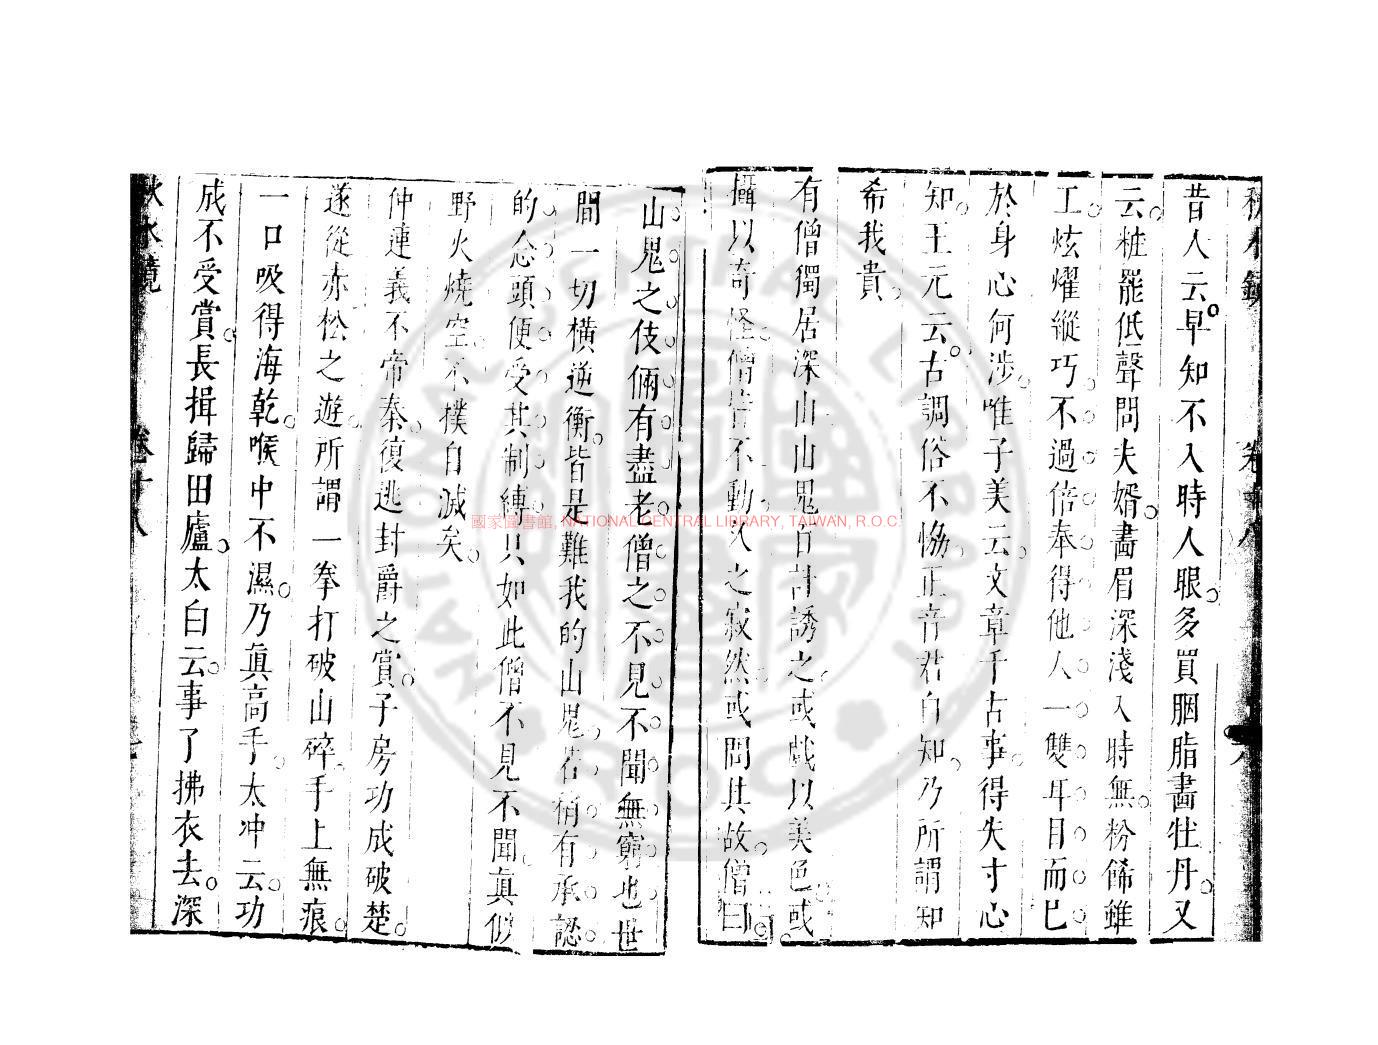 昔人云早知不入時人眼多買胭脂畵牡丹又
云粧罷低聲問夫婿畵眉深淺入時無粉餙雖
工炫耀縱巧不過倍奉得他人一雙耳目而已
於身心何涉唯子美云文章千古事得失寸心
知王元云古調俗不恊正音君自知乃所謂知
希我貴
有僧獨居深山山鬼百計誘之或戯以美色或
攝以奇怪僧皆不動久之寂然或問其故僧曰
山鬼之伎倆有盡老僧之不見不聞無窮也世
間一切橫逆衡皆是難我的山鬼若稍有承認
的念頭便受其制縛只如此僧不見不聞眞似
野火燒空不撲自滅矣
仲連義不帝秦復逃封爵之賞子房功成破楚
遂從赤松之遊所謂一拳打破山碎手上無痕
一口吸得海乾喉中不濕乃眞高手太冲云功
成不受賞長揖歸田廬太白云事了拂衣去深
秋水鏡 卷十八
國家圖書館, NATIONAL CENTRAL LIBRARY, TAIWAN, R.O.C.